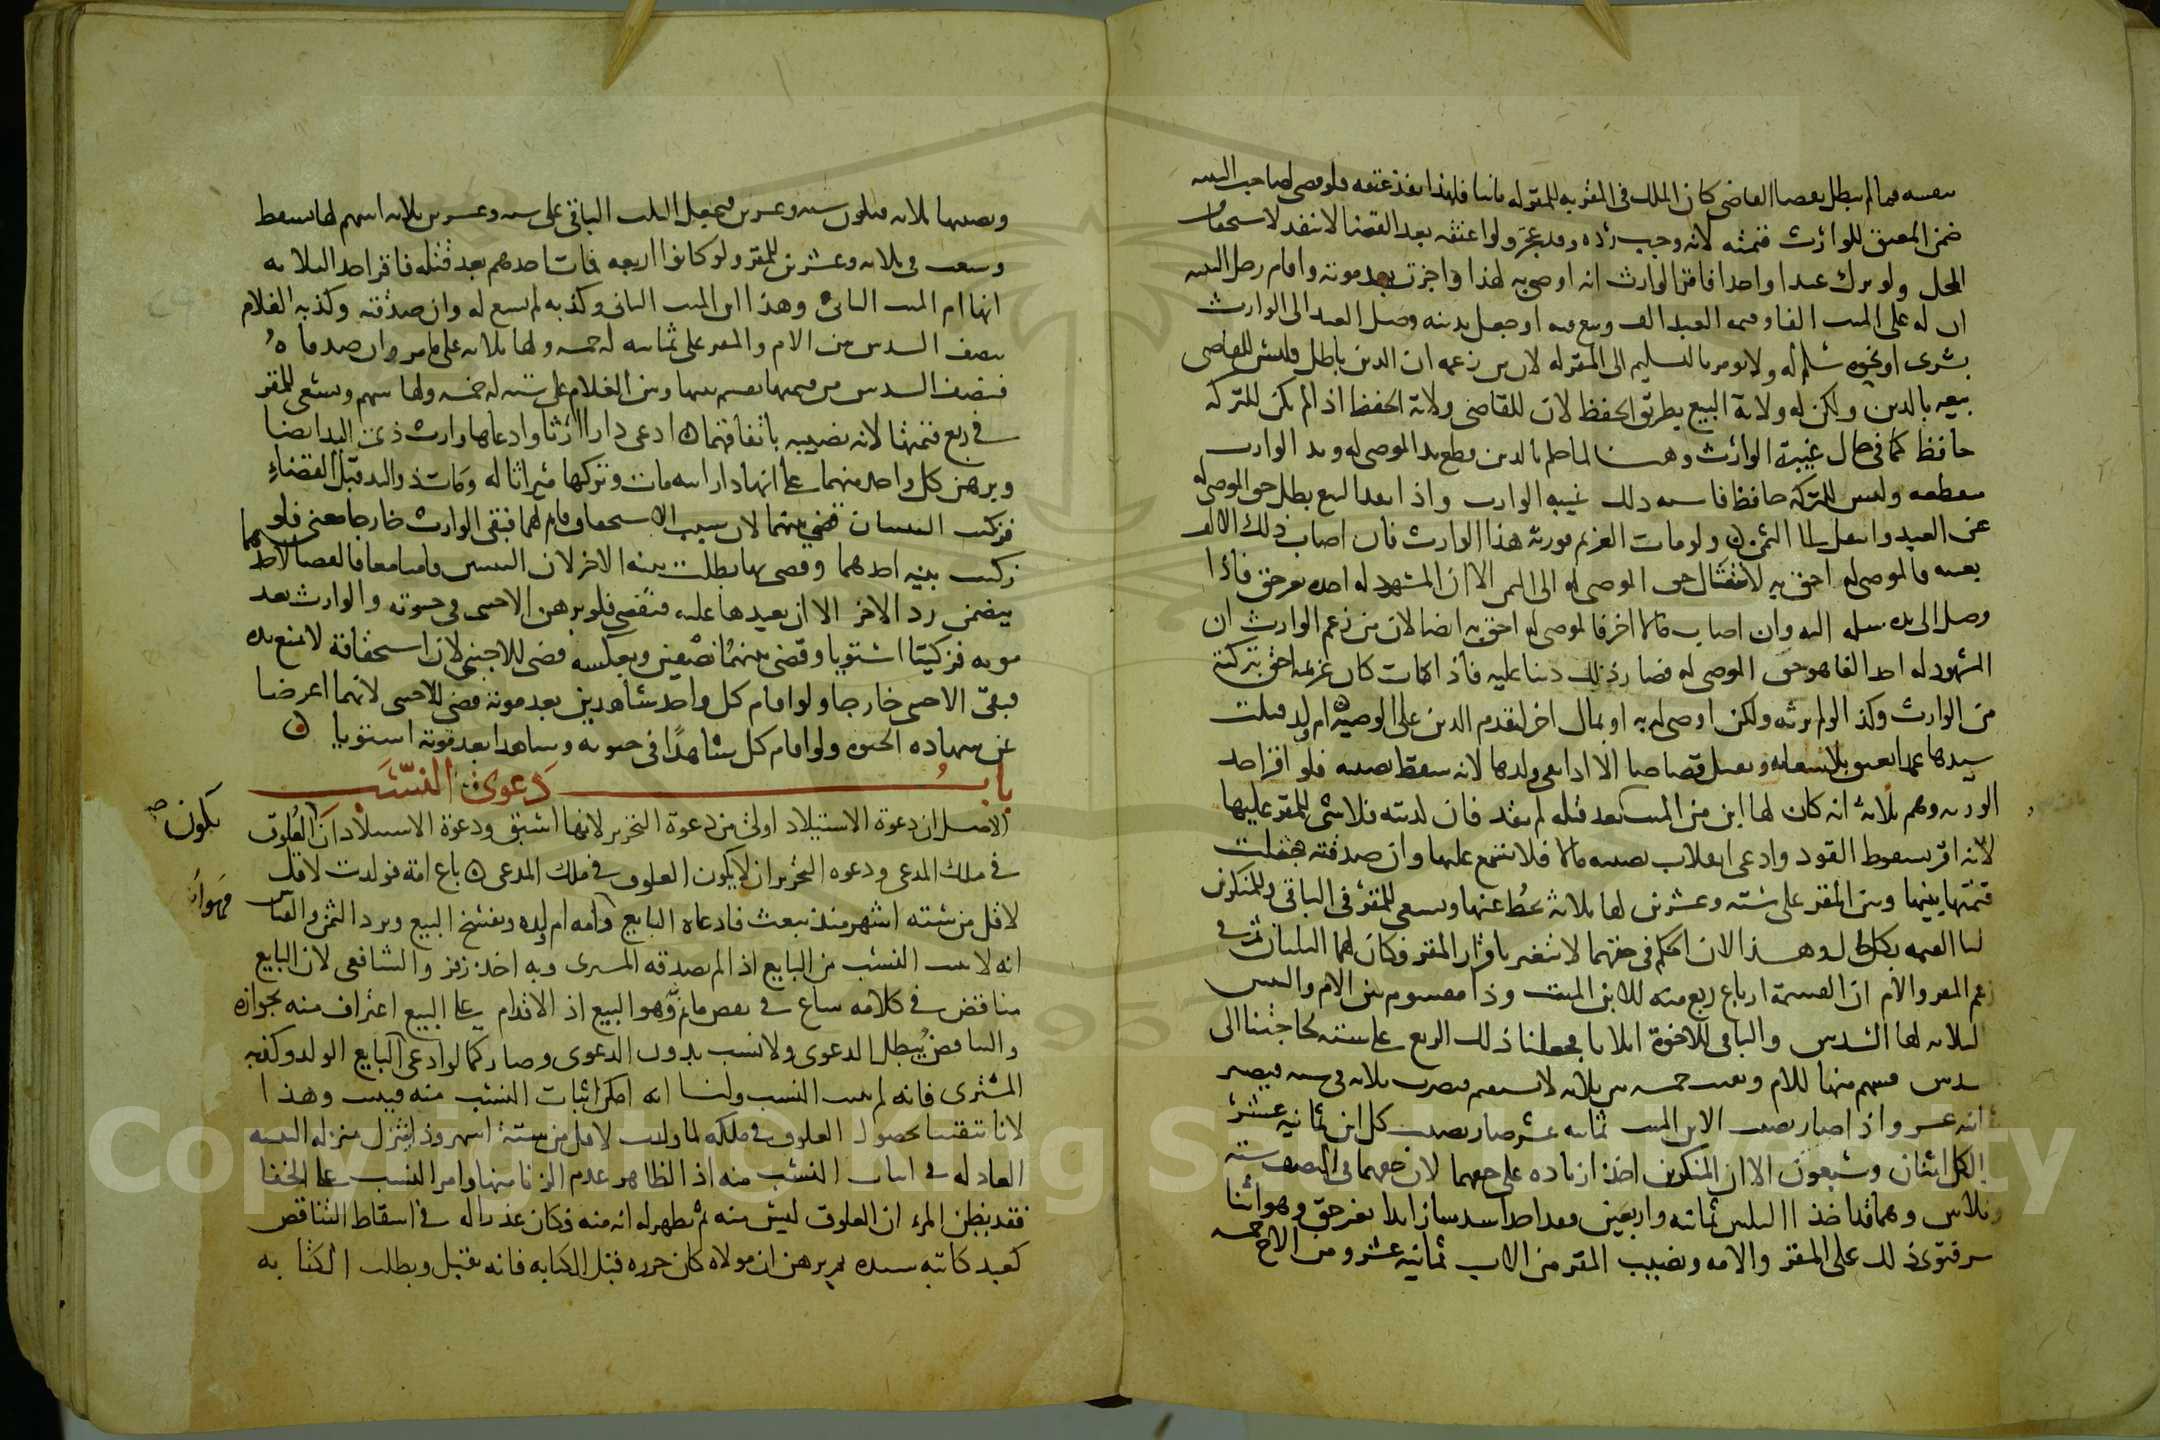 ضمن المعتق للوارث قيمته لانه وجب رده وقد عجز ولو اعتقه بعد القضا لا ينفد لاستحقاق
المحل ولو ترك عبدا واحدا فاقر الوارث انه اوصى به لهذا واجزت بعد موته واقام رجل البينه
ان له على الميت الفا وقيمه العبد الف وبيع فيه او جعل بدينه وصل العبد الى الوارث
بشرى او نحوه سلم له ولا يومر بالتسليم الى المقر له لان من زعمه ان الدين باطل وليس للقاضي
بيعه بالدين ولكن له ولاية البيع بطريق الحفظ لان للقاضي ولاية الحفظ اذا لم يكن للتركة
حافظ كما في حال غيبة الوارث وهنا لما حكم بالدين قطع يد الموصى له ويد الوارث
منقطعه وليس للتركة حافظ فاشبه ذلك غيبه الوارث واذا نفذ البيع بطل حق الموصى له
عن العبد وانتقل الى الثمن ولو مات الغريم فورثه هذا الوارث فان اصاب ذلك الالف
بعينه فالموصى له احق به لانتقال حق الموصى له الى الثمن الا ان المشهود له اخذه بغير حق فاذا
وصل الى يده سلمه اليه وان اصاب مالا اخر فالموصى له احق به ايضا لان من زعم الوارث ان
المشهود له اخذ الفا هو حق الموصى له فصار ذلك دينا عليه فاذا مات كان غريمه احق بتركته
من الوارث وكذا لو لم يرثه ولكن اوصى له به او بمال اخر لتقدم الدين على الوصية ام ولد قتلت
سيدها عمدا تعتق بلا سعايه وتقتل قصاصا الا اذا بقي ولدها لانه سقط نصيبه فلو اقر احد
الورثه وهم ثلاثة انه كان لها ابن من الميت بعد قتله لم ينفد فان كذبته فلا شي للمقر عليها
لانه اقر بسقوط القود وادعى انقلاب نصيبه مالا فلا يسمع عليها وان صدقته جعلت
قيمتها بينها وبين المقر على سته وعشرين لها ثلاثة تحط عنها وتسعى للمقر في الباقي وللمنكرين
زعم المقر والام ان القسمة ارباع ربع منه للابن الميت وذا مقسوم بين الام والبنين
الثلاثه لها السدس والباقي للاخوة اثلاثا فجعلنا ذلك الربع على سته لحاجتنا الى
سدس فسهم منها للام وبقيت خمسه بين ثلاثه لا تستقيم فضرب ثلاثه في سته فيصير
ثمانيه عشر واذا صار نصيب الابن الميت ثمانيه عشر صار نصيب كل ابن ثمانية عشر
الكل اثنان وسبعون الا ان المنكرين اخذا زياده على حقهما لان حقهما في النصف سته
وثلاثين وهما قد اخذا الثلثين ثمانيه واربعين فقد اخذا سدسا زايدا بغير حق وهو اثنا
عشر فتوى ذلك على المقر والامه ونصيب المقر من الاب ثمانية عشر ومن الاخ خمسه
ونصيبها ثلاثه فيكون سته وعشرين فيجعل الثلث الباقي على سته وعشرين ثلاثه اسهم لها تسقط
وتسعى في ثلاثه وعشرين للمقر ولو كانوا اربعه فمات احدهم بعد قتله فاقر احد الثلاثه
انها ام الميت الثاني وهذا ابن الميت الثاني وكذبه لم يسع له وان صدقته وكذبه الغلام
فنصف السدس بين الام والمقر على ثمانيه له خمسه ولها ثلاثه على ما مر وان صدقاه
فنصف السدس من قيمتها يقسم بينها وبين الغلام على سته له خمسه ولها سهم وتسعى للمقر
في ربع قيمتها لانه نصيبه باتفاقهما ادعى دارا ارثا وادعاها وارث ذي اليد ايضا
وبرهن كل واحد منهما على انها دار ابيه مات وتركها ميراثا له ومات ذو اليد قبل القضاء
فزكيت البينتان قضي بينهما لان سبب الاستحقاق قام لهما فبقي الوارث خارجا معنى فلو
زكيت بينة احدهما وقضي بها بطلت بينه الاخر لان البينتين قامتا معا فالقضا لاحدهما
يتضمن رد الاخر الا ان يعيدها عليه فتقضى فلو برهن الاجنبي في حيوته والوارث بعد
موته فزكيتا استويا وقضي بينهما نصفين وبعكسه قضي للاجنبي لان استحقاقه لا يمنع يده
فبقي الاجنبي خارجا ولو اقام كل واحد شاهدين بعد موته قضي للاجنبي لانهما اعرضا
عن شهاده الحيوه ولو اقام كل شاهدا في حيوته وشاهدا بعد موته استويا
باب دعوى النسب
الاصل ان دعوة الاستيلاد اولى من دعوة التحرير لانها اسبق ودعوة الاستيلاد ان العلوق
يكون صح
في ملك المدعي ودعوه التحرير ان لا يكون العلوق في ملك المدعي باع امة فولدت لاقل
لاقل من سته اشهر منذ بيعت فادعاه البايع وامه ام ولده ويفسخ البيع ويرد الثمن والقياس
انه لا يثبت النسب من البايع اذا لم يصدقه المشتري وبه اخذ زفر والشافعي لان البايع
مناقض في كلامه ساع في نقض ما تم وهو البيع اذ الاقدام على البيع اعتراف منه بجوازه
والتناقض يبطل الدعوى ولا نسب بدون الدعوى وصار كما لو ادعى ابو البايع الولد وكذبه
المشتري فانه لم يثبت النسب ولنا انه امكن اثبات النسب منه فيثبت وهذا
لانا تيقنا بحصول العلوق في ملكه لما ولدت لاقل من ستة اشهر وذا ينزل منزله البينه
العادله في اثبات النسب منه اذ الظاهر عدم الزنا منها وامر النسب على الخفا
فقد يظن المرء ان العلوق ليس منه ثم يظهر له انه منه فكان عذرا له في اسقاط التناقض
كعبد كاتبه سيده ثم برهن ان مولاه كان حرره قبل الكتابه فانه يقبل ويطلب الكتابه